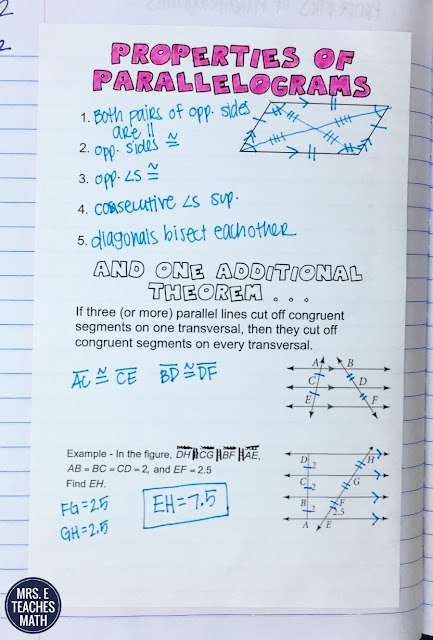 2
2
PROPERTIES OF
PARALLELOGRAMS
1. Both pairs of opp. sides
are ||
2. opp. sides ≅
3. opp. ∠s ≅
4. consecutive ∠s sup.
5. diagonals bisect eachother
AND ONE ADDITIONAL
THEOREM . . .
If three (or more) parallel lines cut off congruent
segments on one transversal, then they cut off
congruent segments on every transversal.
AC ≅ CE BD ≅ DF
A B
C D
E F
Example - In the figure, DH || CG || BF || AE,
AB = BC = CD = 2, and EF = 2.5
Find EH.
FG = 2.5
GH = 2.5
EH = 7.5
D H
2
C G
2
B F
2.5
A E
MRS. E
TEACHES
MATH